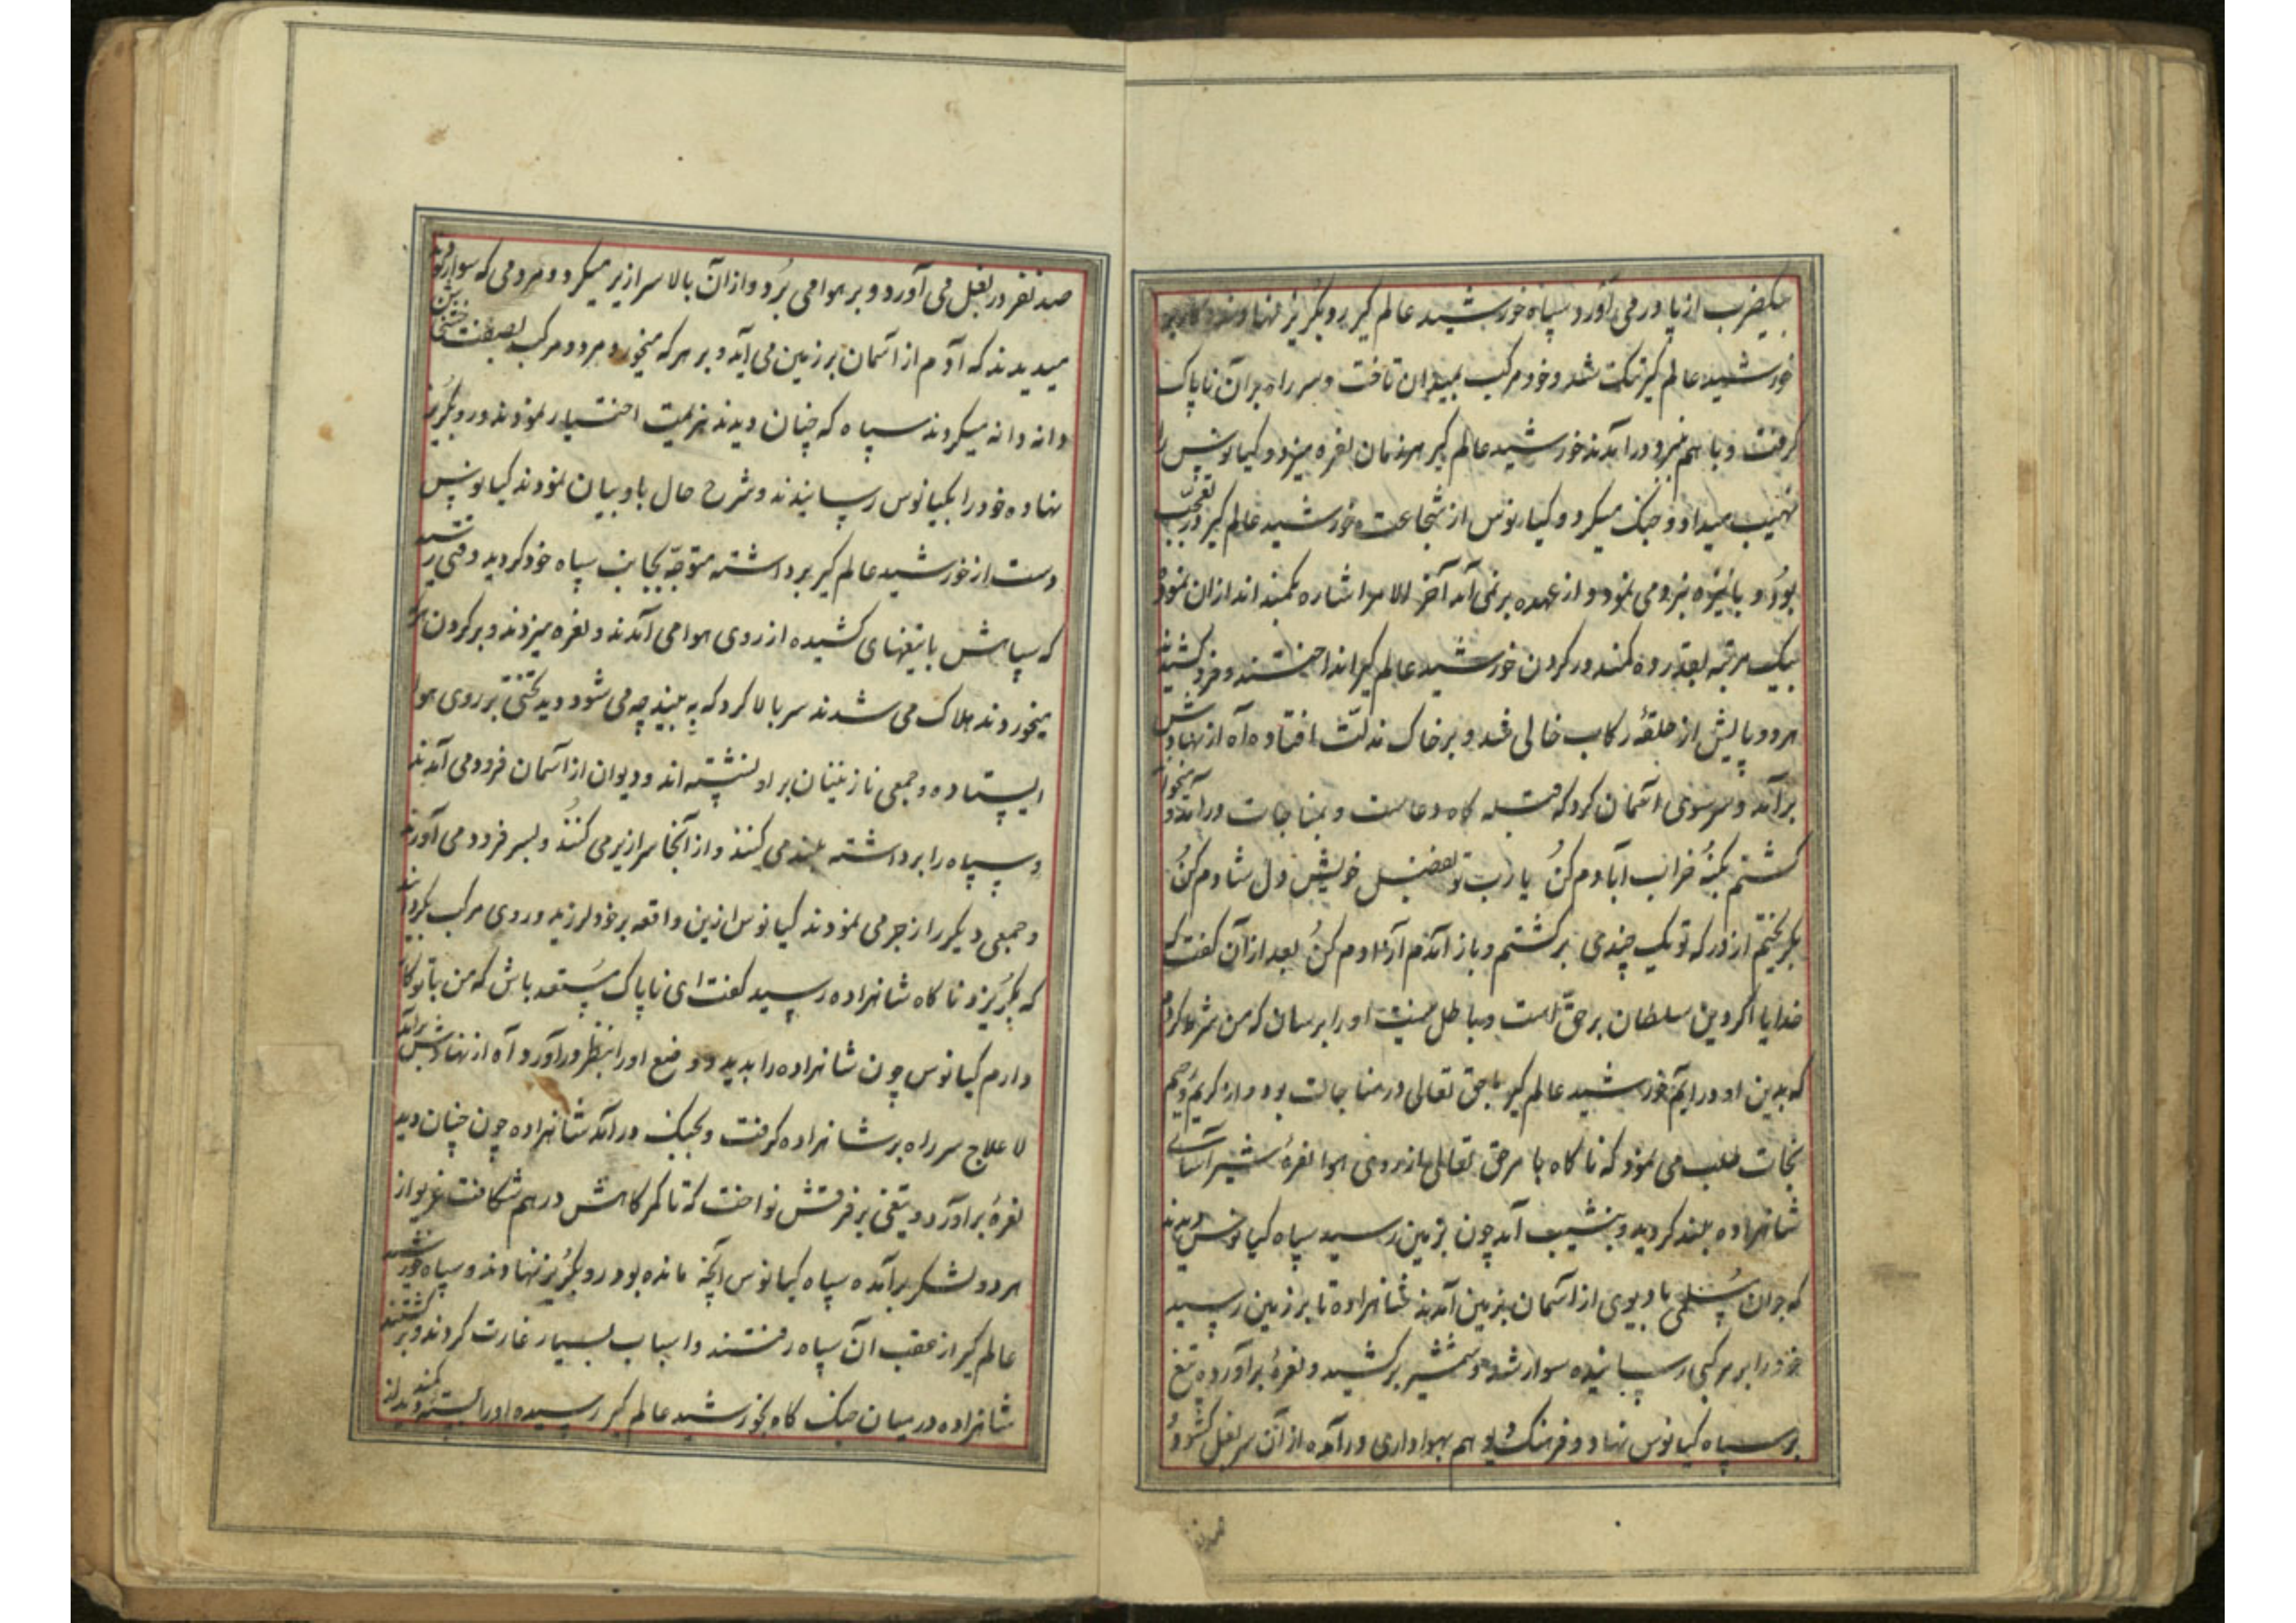 بیکضرب از پا در می آورد سپاه خورشید عالم کیر رو بکریز نهادند
خورشید عالم کیر تنک شد و خود مرکب بمیدان تاخت و سر راه بر آن ناپاک
کرفت و با هم نبرد در آمدند خورشید عالم کیر هر زمان نعره میزد و کیانوس را
نهیب میداد و جنک میکرد و کیانوس از شجاعت خورشید عالم کیر در تعجب
بود و با نیزه نبرد می نمود و از عهده بر نمی آمد آخر الامر اشاره بکمند اندازان نمود
بیک مرتبه بقدر ده کمند در کردن خورشید عالم کیر انداختند و فرو کشیدند
هر دو پایش از حلقهٔ رکاب خالی شد و بر خاک مذلت افتاده آه از نهادش
برآمد و سر سوی آسمان کرد که قبله کاه دعاست و بمناجات درآمد و میخواند
کشتم بکنه خراب آبادم کن یا رب تو بفضل خویش دل شادم کن
بکریختم از در که تو یک چندی برکشتم و باز آمدم آزادم کن بعد از آن کفت که
خدایا اکر دین سلطان بر حق است و باطل نیست او را برسان که من شرط کردم
که بدین او درایم خورشید عالم کیر با حق تعالی در مناجات بود و از کریم رحیم
نجات طلب می نمود که ناکاه با مر حق تعالی از روی هوا نعرهٔ شیر آسای
شاهزاده بلند کردید و بنشیب آمد چون بزمین رسید سپاه کیانوس دیدند
که جوان سلحی با دیوی از آسمان بزمین آمدند شاهزاده تا بر زمین رسید
خود را بر مرکبی رسانیده سوار شد و شمشیر بر کشید و نعرهٔ برآورده تیغ
بر سپاه کیانوس نهاد و فرهنک دیو هم بهواداری درآمده از آن سر بغل کشود و
صد نفر در بغل می آورد و بر هوا می برد و از آن بالا سرازیر میکرد و مردمی که سوار بودند
میدیدند که آدم از آسمان بر زمین می آید و بر هر که میخورد مرد و مرکب بصفت خشخاش
دانه دانه میکردند سپاه که چنان دیدند هزیمت اختیار نمودند و رو بکریز
نهاده خود را بکیانوس رسانیدند و شرح حال باو بیان نمودند کیانوس
دست از خورشید عالم کیر برداشته متوجه بجانب سپاه خود کردید وقتی رسید
که سپاهش با تیغهای کشیده از روی هوا می آمدند و نعره میزدند و بر کردن هر که
میخوردند هلاک می شدند سر بالا کرد که به بیند چه می شود دید تختی بر روی هوا
ایستاده و جمعی نازنینان بر او نشسته اند و دیوان از آسمان فرود می آمدند
و سپاه را برداشته بلند می کنند و از آنجا سرازیر می کنند و بسر فرود می آورند
و جمعی دیکر را زجر می نمودند کیانوس ازین واقعه بر خود لرزید و روی مرکب بکردانید
که بکریزد ناکاه شاهزاده رسید کفت ای ناپاک مستعد باش که من با تو کار
دارم کیانوس چون شاهزاده را بدید و وضع او را بنظر درآورد آه از نهادش برآمد
لا علاج سر راه بر شاهزاده کرفت و بجنک درآمد شاهزاده چون چنان دید
نعرهٔ برآورد و تیغی بر فرقش نواخت که تا کمرکاهش در هم شکافت غریو از
هر دو لشکر برآمده سپاه کیانوس آنچه مانده بود رو بکریز نهادند و سپاه خورشید
عالم کیر از عقب آن سپاه رفتند و اسباب بسیار غارت کردند و برکشتند
شاهزاده در میان جنک کاه بخورشید عالم کیر رسیده او را بسته کمند دید از